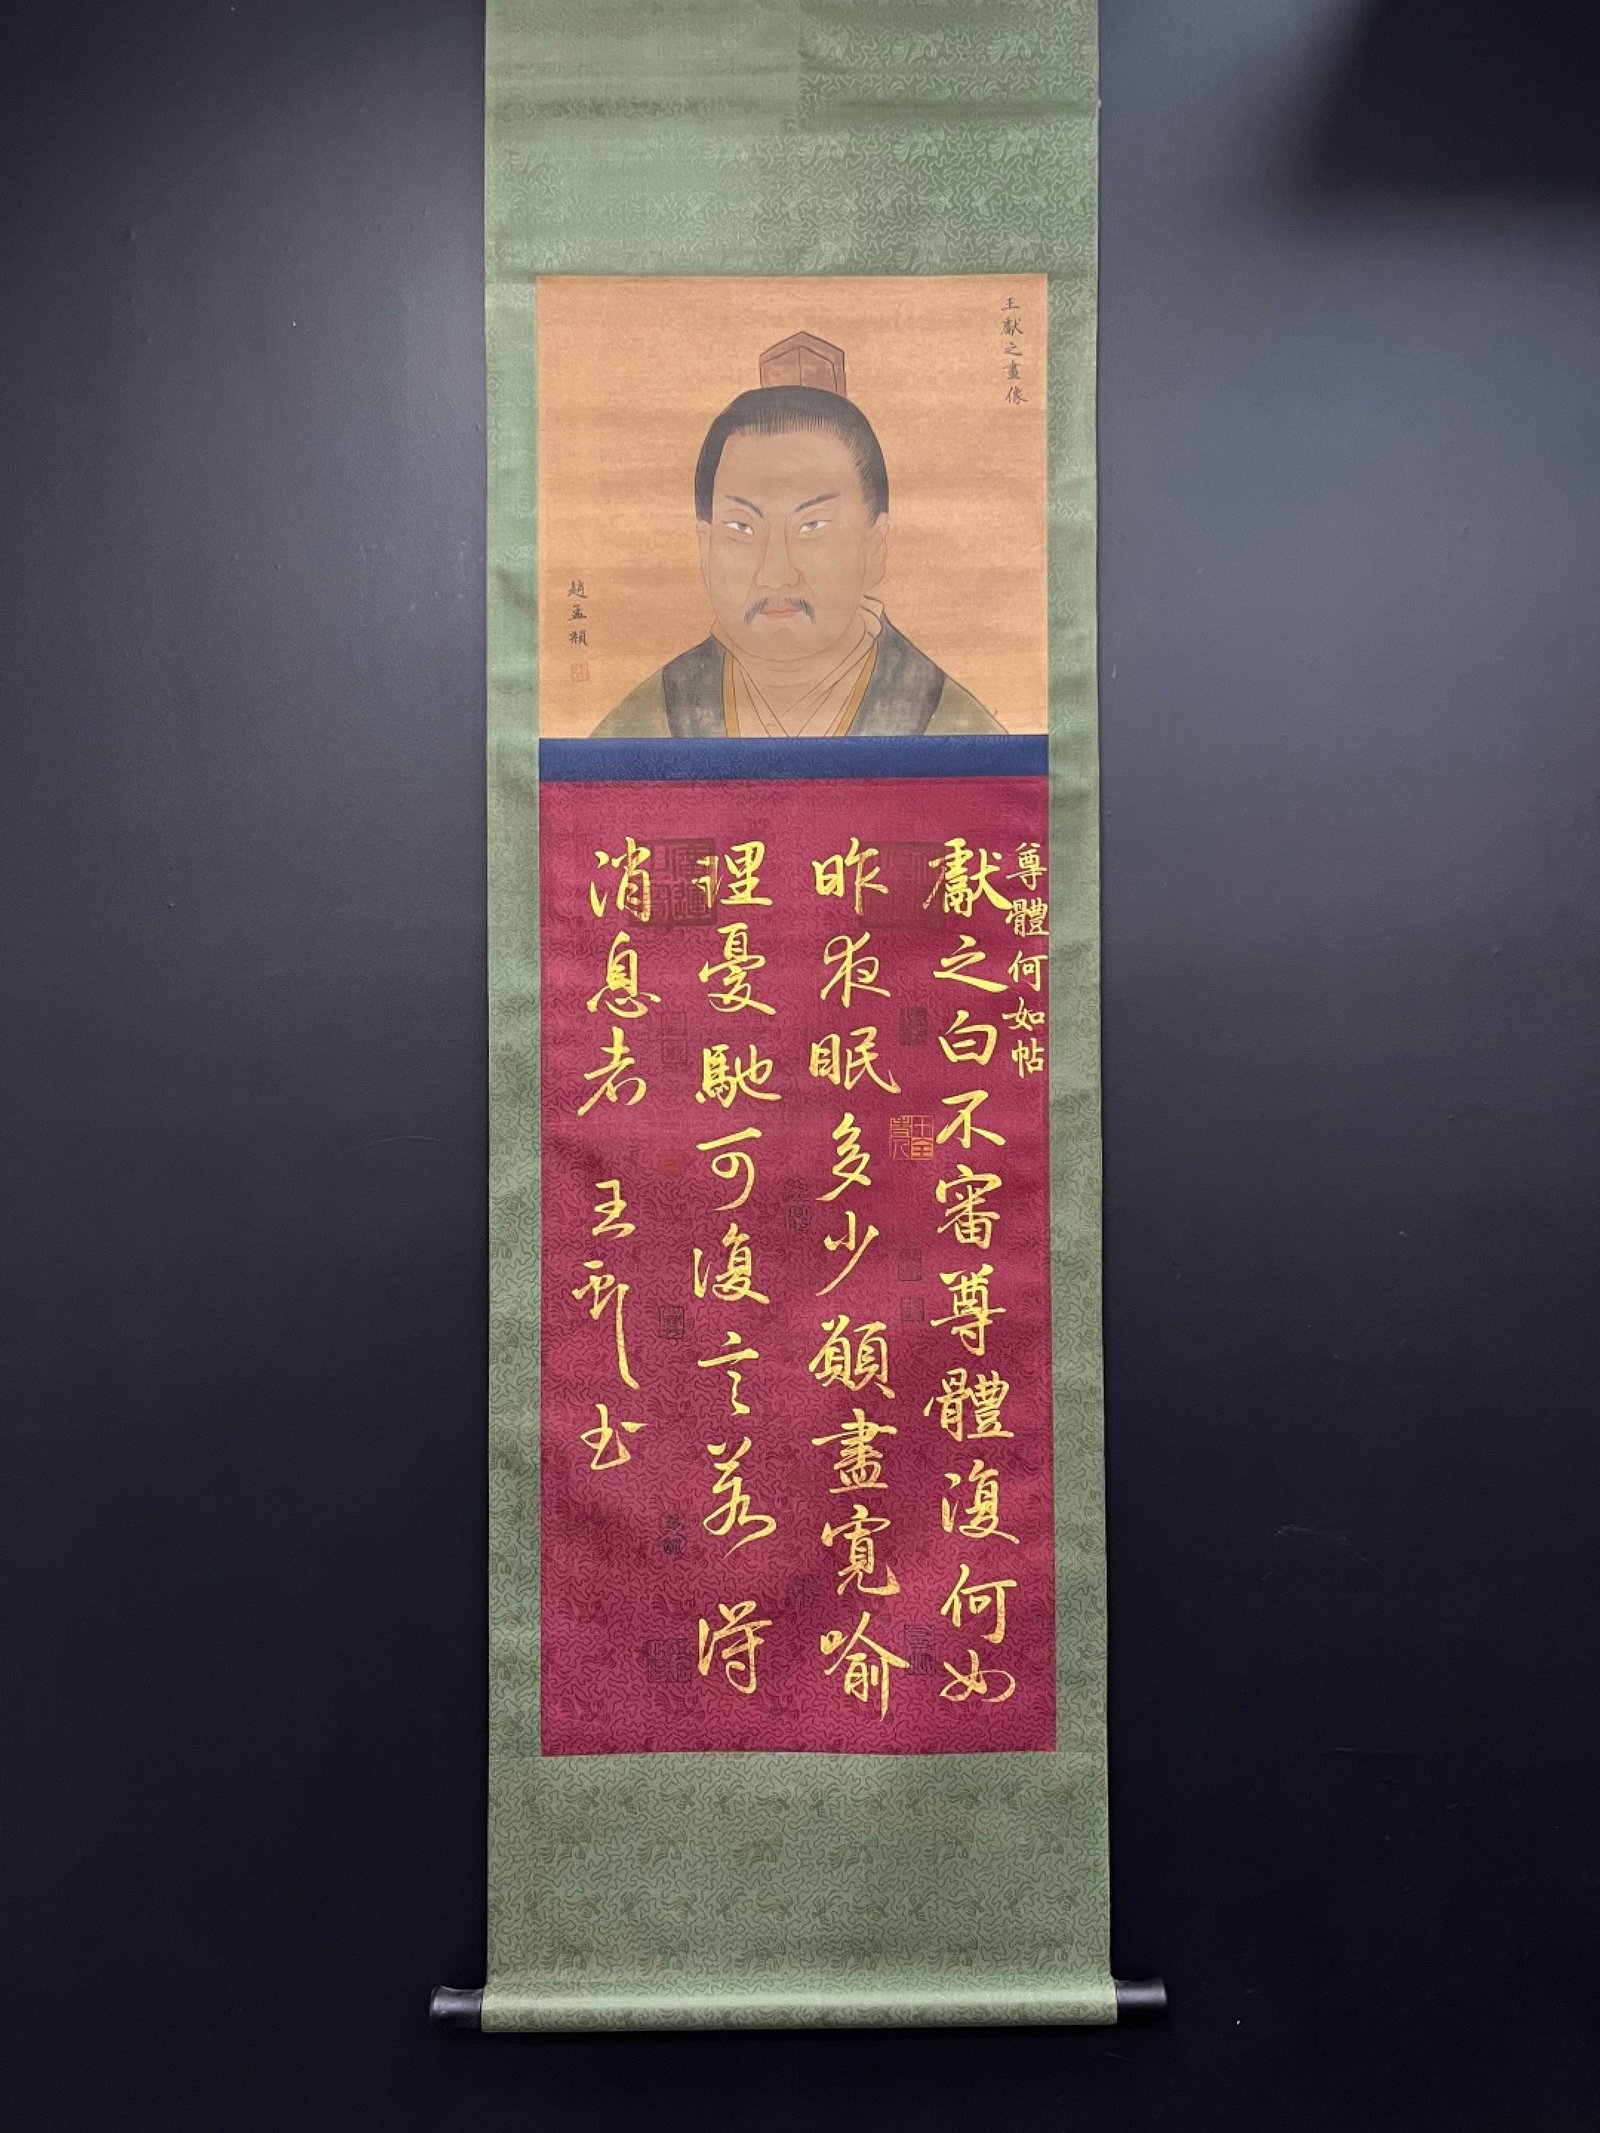 王獻之畫像
趙孟頫
尊體何如帖
獻之白不審尊體復何如
昨夜眠多少願盡寬喻
理憂馳可復言若得
消息者 王 書